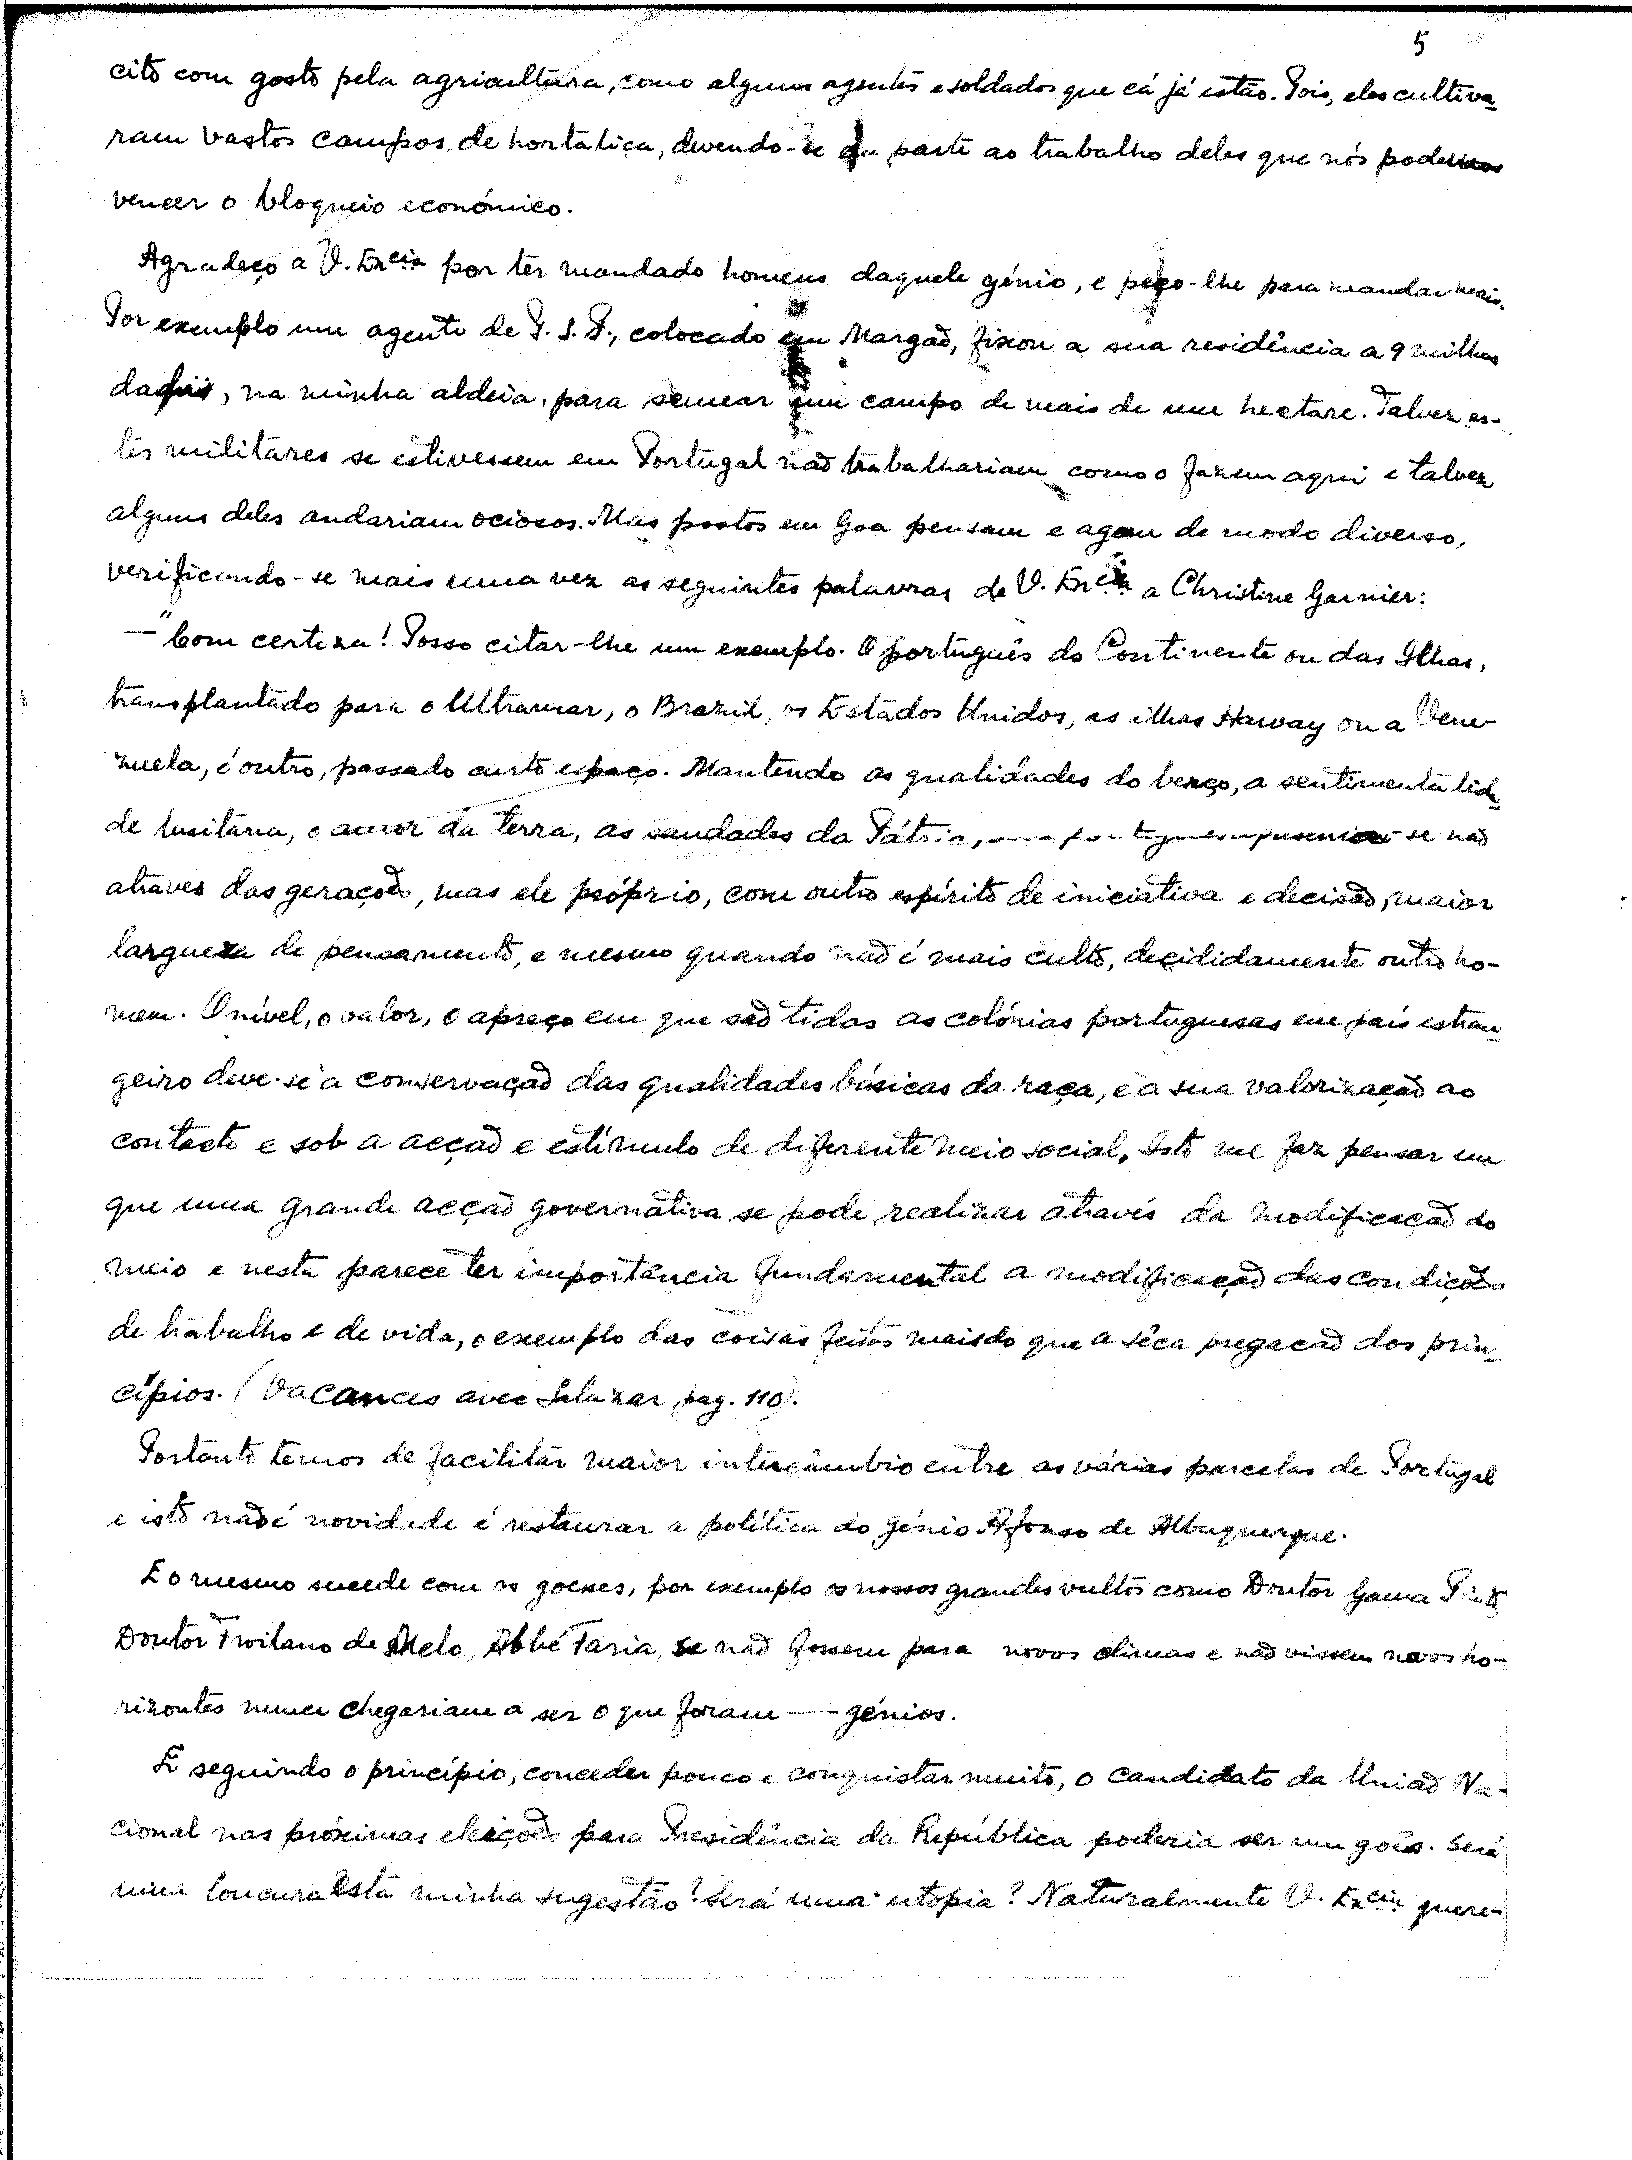 5
cito com gosto pela agricultura, como alguns agentes e soldados que cá já estão. Pois, eles cultiva-
ram vastos campos de hortaliça, devendo-se em parte ao trabalho deles que nós podemos
vencer o bloqueio económico.
Agradeço a V. Excia por ter mandado homens daquele génio, e peço-lhe para mandar mais.
Por exemplo um agente de P. S. P., colocado em Margão, fixou a sua residência a 9 milhas
daqui, na minha aldeia, para semear um campo de mais de um hectare. Talvez es-
tes militares se estivessem em Portugal não trabalhariam como o fazem aqui e talvez
alguns deles andariam ociosos. Mas postos em Goa pensam e agem de modo diverso,
verificando-se mais uma vez as seguintes palavras de V. Excia a Christine Garnier:
— "Com certeza! Posso citar-lhe um exemplo. O português do Continente ou das Ilhas,
transplantado para o Ultramar, o Brazil, os Estados Unidos, as ilhas Haway ou a Vene-
zuela, é outro, passado curto espaço. Mantendo as qualidades do berço, a sentimentalida-
de lusitana, o amor da terra, as saudades da Pátria, se não
através das gerações, mas ele próprio, com outro espírito de iniciativa e decisão, maior
largueza de pensamento, e mesmo quando não é mais culto, decididamente outro ho-
mem. O nível, o valor, o apreço em que são tidas as colónias portuguesas em país estran-
geiro deve-se à conservação das qualidades básicas da raça, e à sua valorização ao
contacto e sob a acção e estímulo de diferente meio social. Isto me faz pensar em
que uma grande acção governativa se pode realizar através da modificação do
meio e nesta parece ter importância fundamental a modificação das condições
de trabalho e de vida, o exemplo das coisas feitas mais do que a sêca pregação dos prin-
cípios. (Vacances avec Salazar, pag. 110).
Portanto temos de facilitar maior intercâmbio entre as várias parcelas de Portugal
e isto não é novidade é restaurar a política do génio Afonso de Albuquerque.
E o mesmo sucede com os goeses, por exemplo os nossos grandes vultos como Doutor Gama Pinto
Doutor Froilano de Melo, Abbé Faria, se não fossem para novos climas e não vissem novos ho-
rizontes nunca chegariam a ser o que foram — génios.
E seguindo o princípio, conceder pouco e conquistar muito, o candidato da União Na-
cional nas próximas eleições para Presidência da República poderia ser um goês. Será
uma loucura esta minha sugestão? Será uma utopia? Naturalmente V. Excia quere-